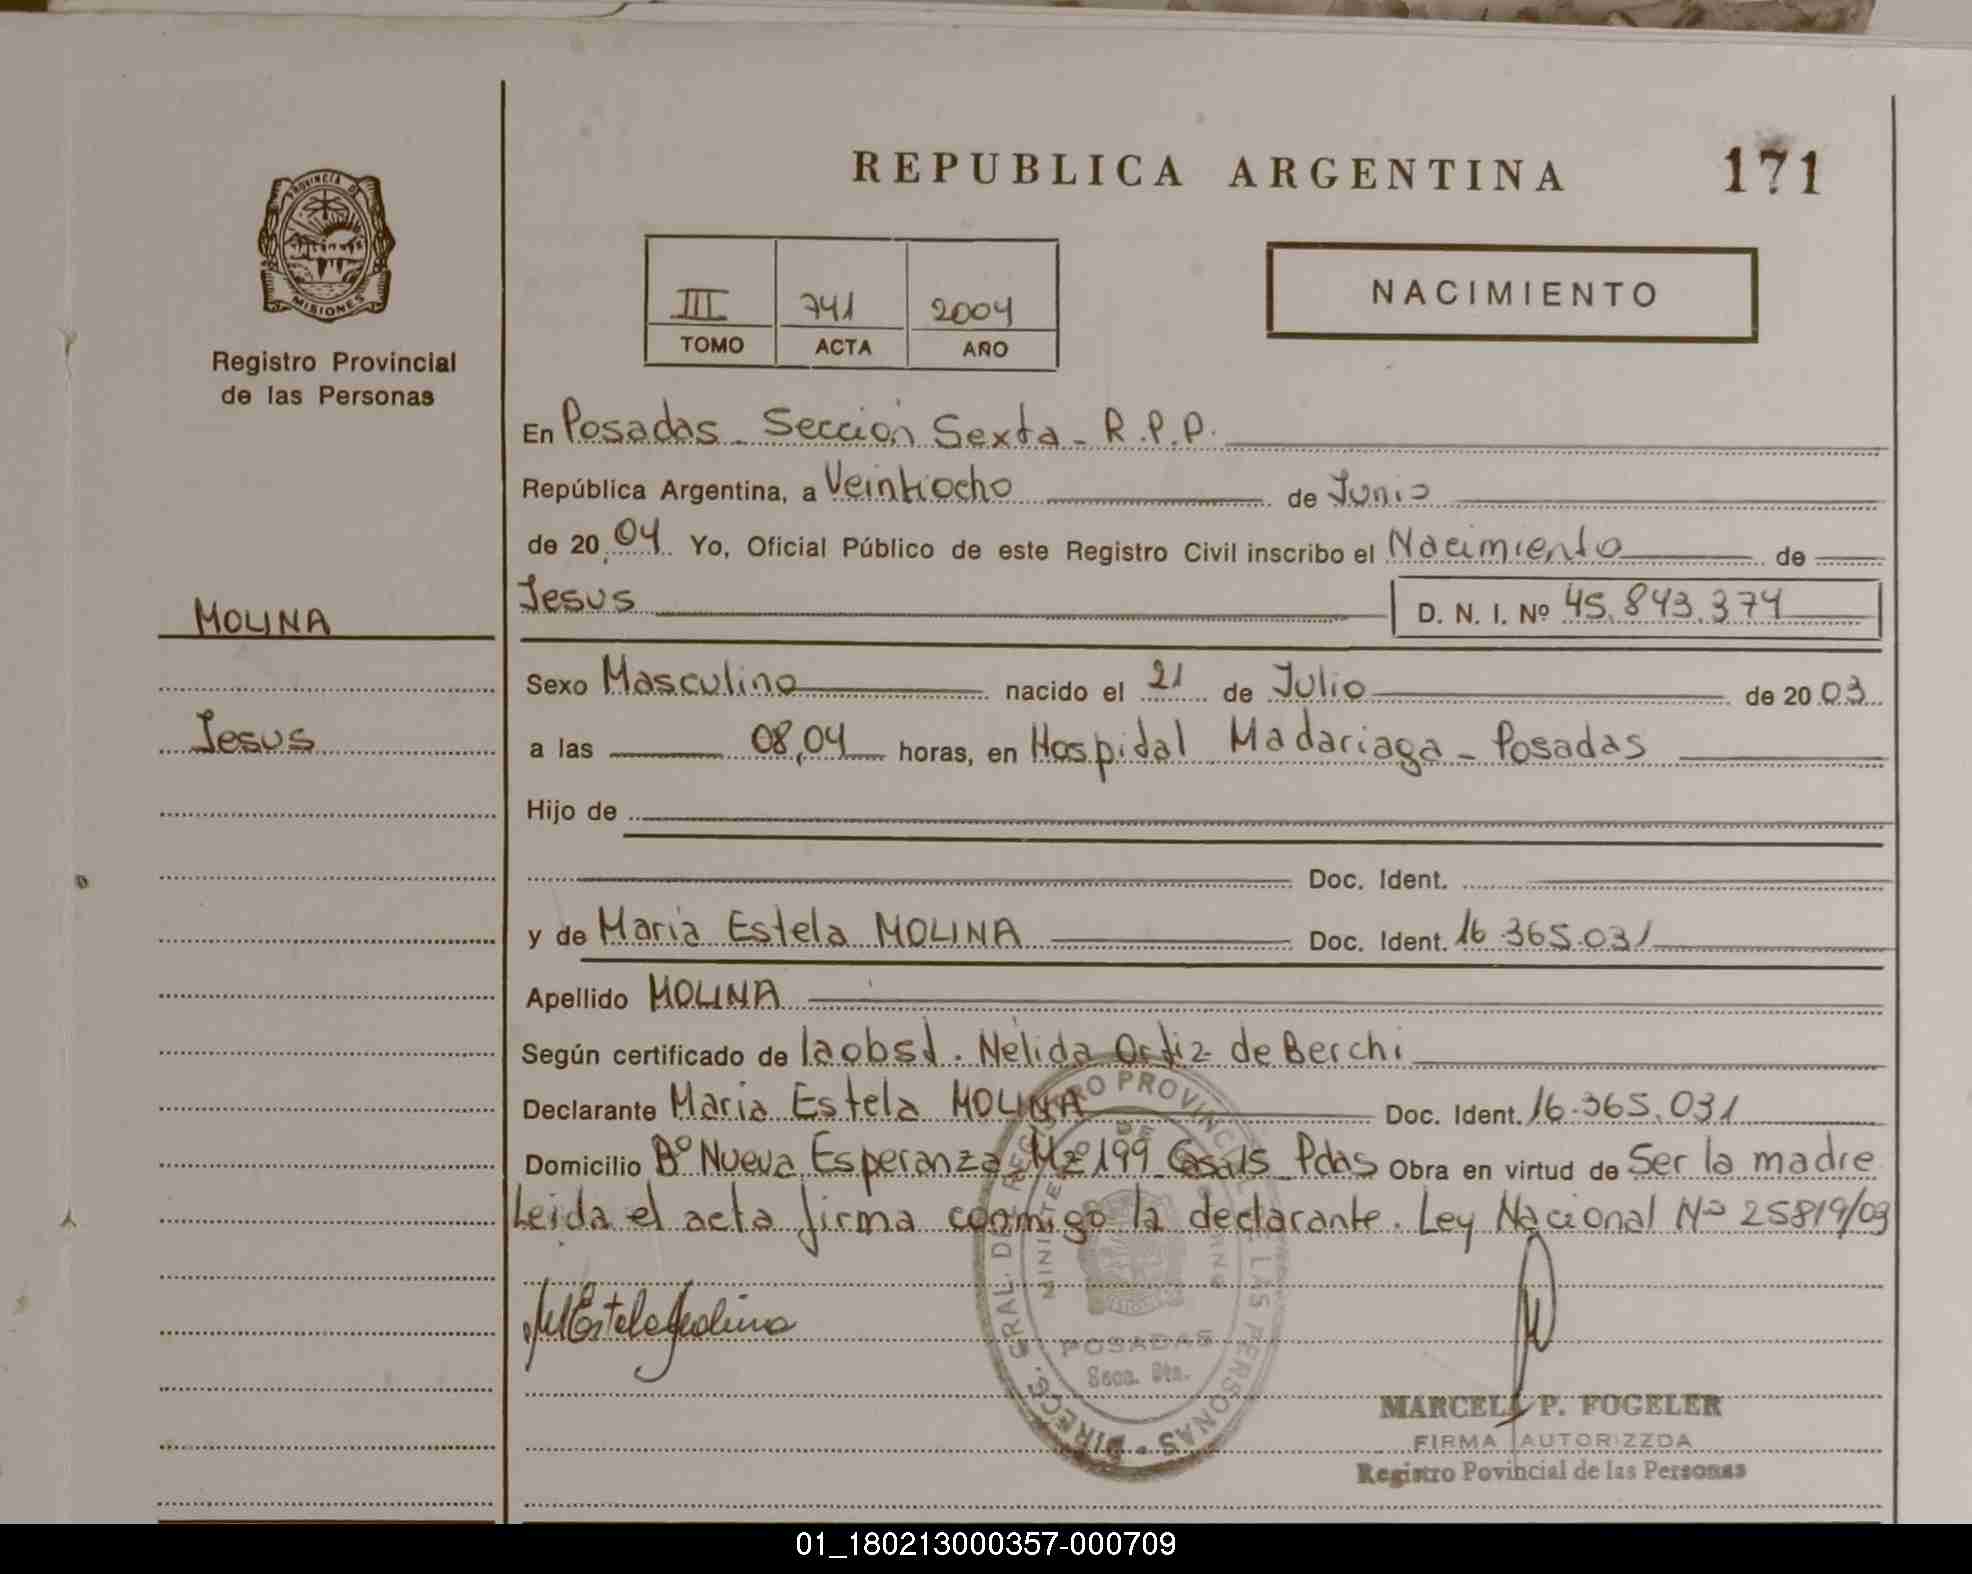 REPUBLICA ARGENTINA
171
PROVINCIA DE
MISIONES
Registro Provincial
de las Personas
III 741 2004
TOMO ACTA AÑO
NACIMIENTO
En Posadas - Sección Sexta - R.P.P.
República Argentina, a Veintiocho de Junio
de 20 04 Yo, Oficial Público de este Registro Civil inscribo el Nacimiento de
MOLINA
Jesus
Jesus D. N. I. Nº 45.843.374
Sexo Masculino nacido el 21 de Julio de 20 03
a las 08,04 horas, en Hospital Madariaga - Posadas
Hijo de
Doc. Ident.
y de Maria Estela MOLINA Doc. Ident. 16.365.031
Apellido MOLINA
Según certificado de la obst. Nélida Ortiz de Berchi
Declarante Maria Estela MOLINA Doc. Ident. 16.365.031
Domicilio Bº Nueva Esperanza Mzº 199 Casa 15 Pdas Obra en virtud de Ser la madre
Leida el acta firma conmigo la declarante. Ley Nacional Nº 25819/03
M Estela Molina
DIRECC. GRAL. DE REGISTRO PROVINCIAL DE LAS PERSONAS
POSADAS
Secc. 6ta.
MARCELA P. FOGELER
FIRMA AUTORIZZDA
Registro Povincial de las Personas
01_180213000357-000709